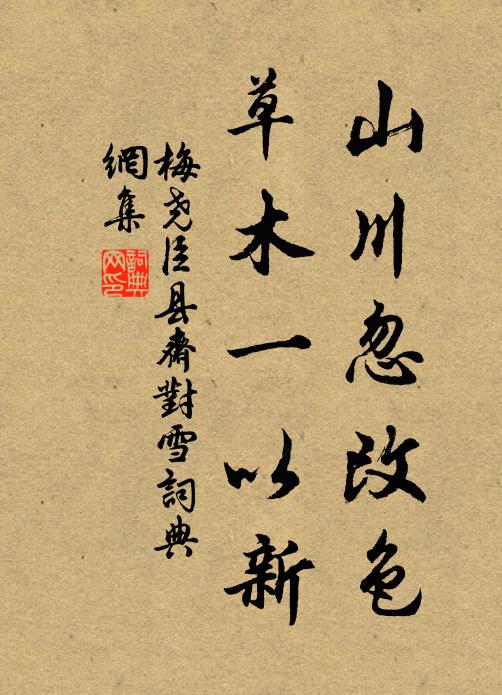 山川忽改色
草木一以新
梅尧臣县齋對雪詞典
網集
詞典
网印